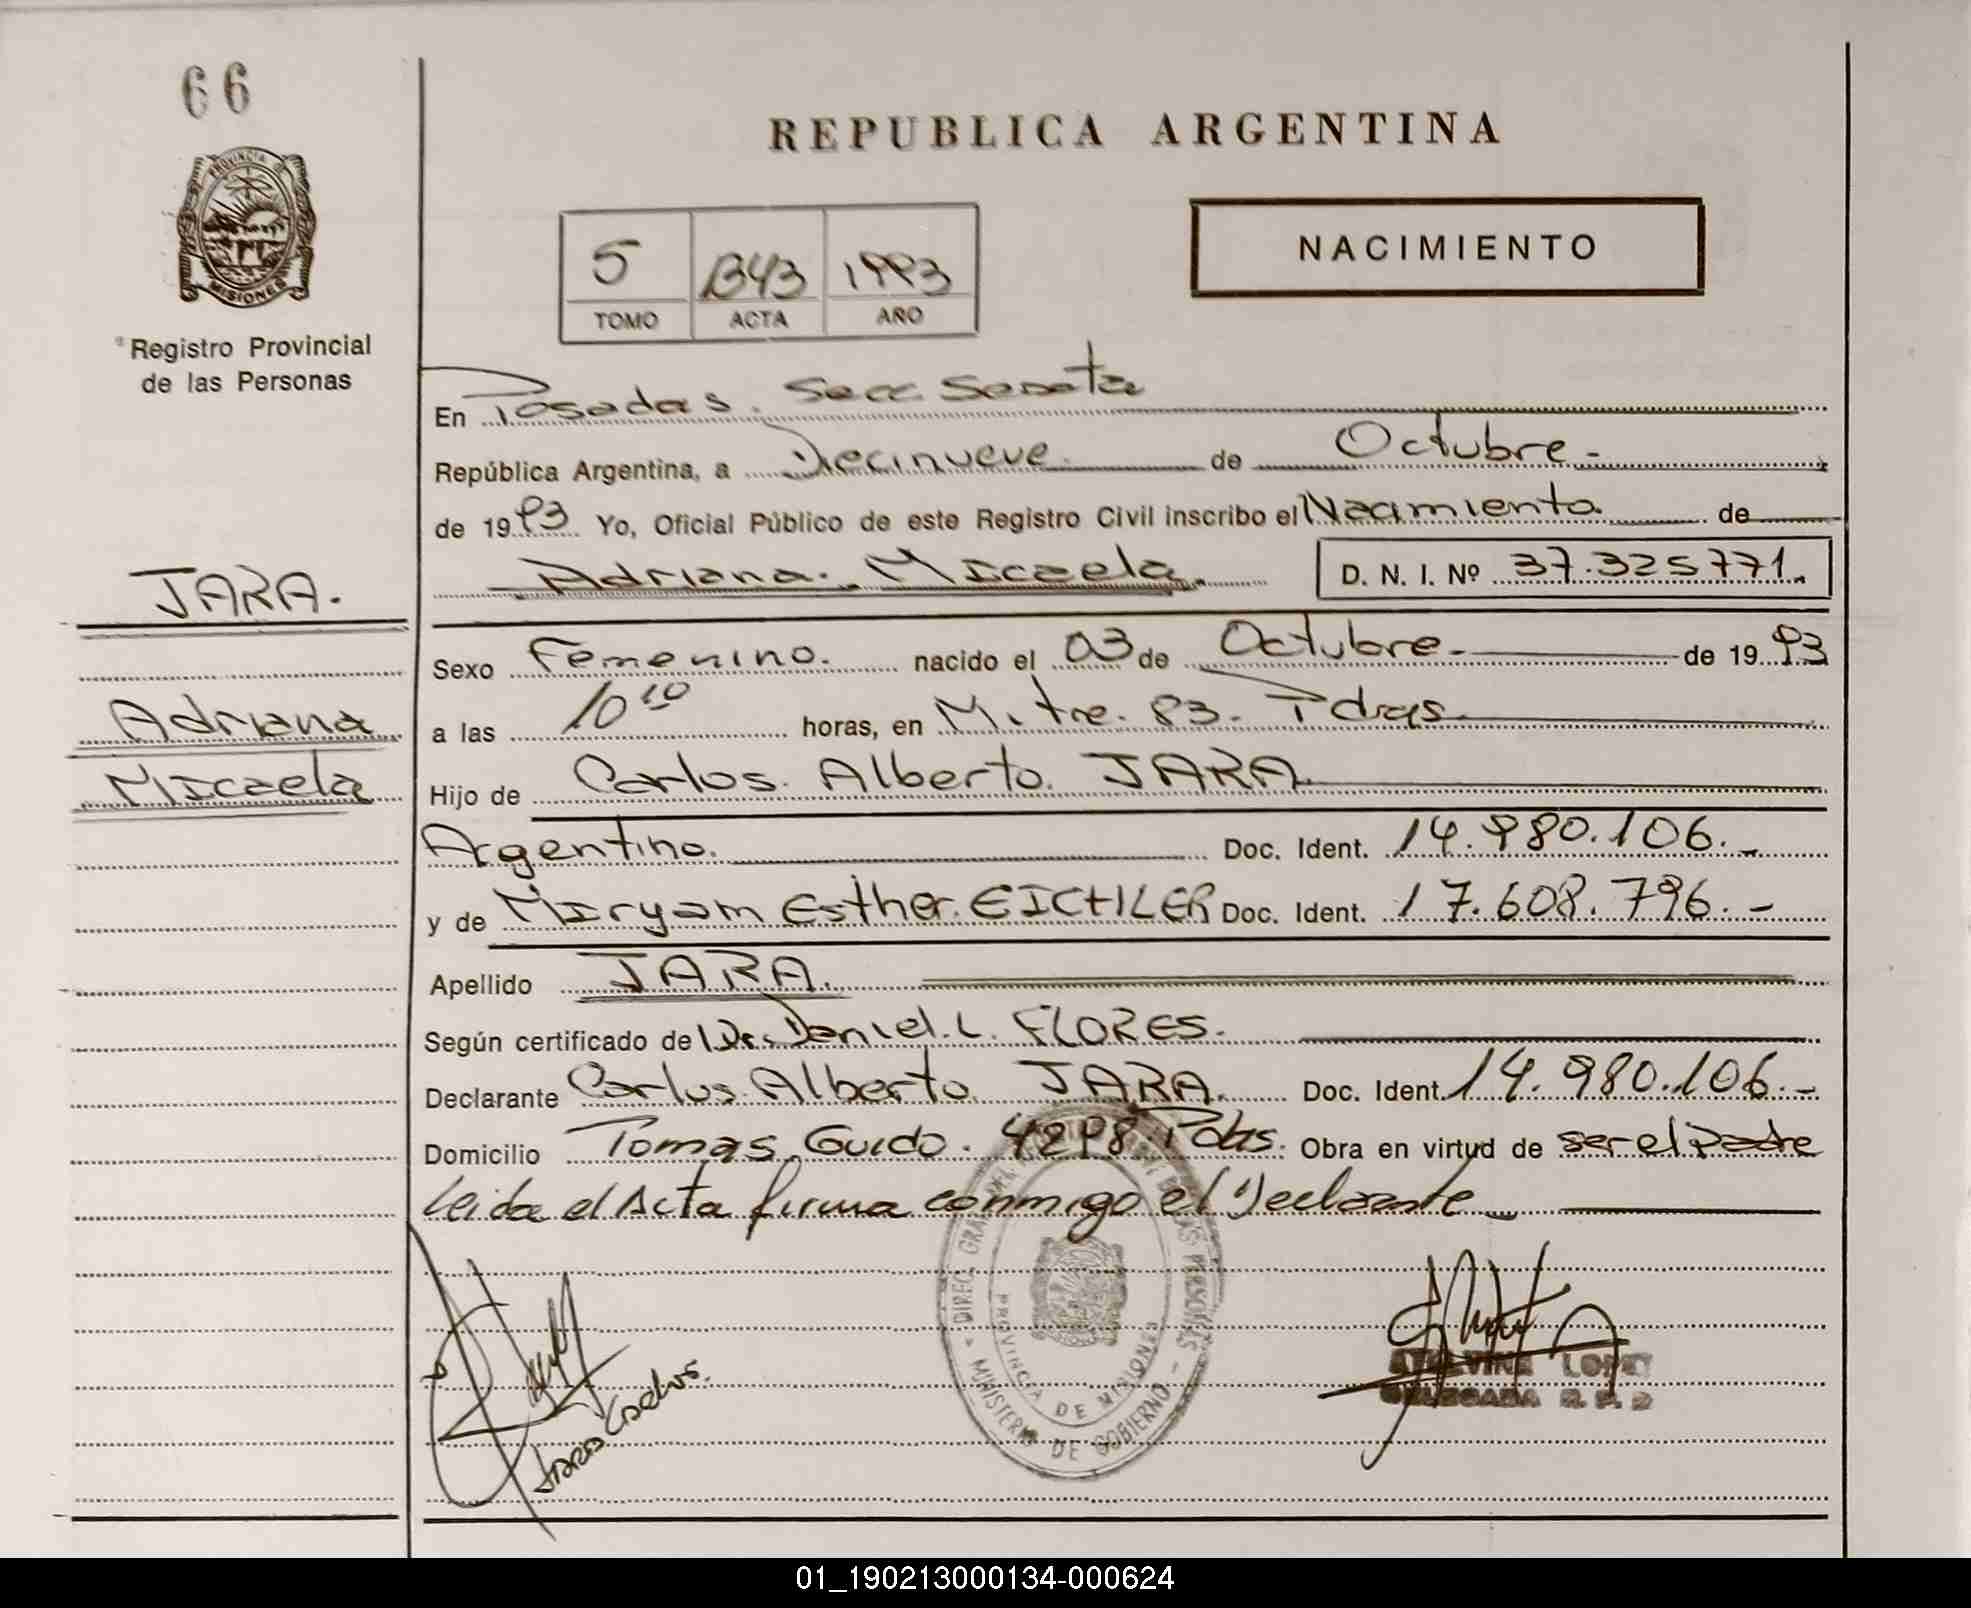 66
REPUBLICA ARGENTINA
PROVINCIA DE
MISIONES
5 1343 1993
TOMO ACTA AÑO
NACIMIENTO
Registro Provincial
de las Personas
En Posadas. Secc Sexta
República Argentina, a Diecinueve de Octubre.-
de 1993 Yo, Oficial Público de este Registro Civil inscribo el Nacimiento de
Adriana Micaela D. N. I. Nº 37.325771.
JARA.
Adriana
Micaela
Sexo Femenino. nacido el 03 de Octubre.- de 1993
a las 10 10 horas, en Mitre. 83. Pdas.
Hijo de Carlos. Alberto. JARA.
Argentino. Doc. Ident. 14.980.106.-
y de Miryam Esther. EICHLER Doc. Ident. 17.608.796.-
Apellido JARA.
Según certificado de Dr. Daniel. L. FLORES.
Declarante Carlos Alberto JARA. Doc. Ident. 14.980.106.-
Domicilio Tomas Guido. 4298. Pdas. Obra en virtud de ser el Padre
Leida el Acta firma conmigo el Declarante
DIREC. GRAL. DEL DE LAS PERSONAS - MINISTERIO DE GOBIERNO -
PROVINCIA DE MISIONES
Jara Carlos.
LOPEZ
DELEGADA R. P. P
01_190213000134-000624